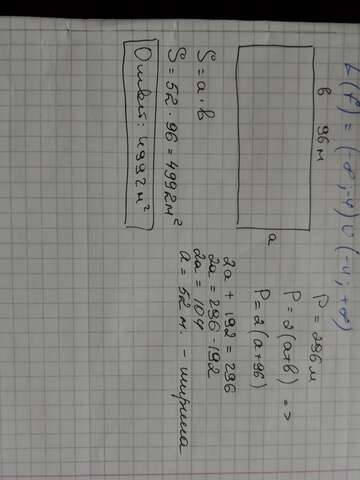 D(f) = (-∞;-4) ∪ (-4;+∞)
в 96м
a
P = 296м
P = 2(a+в) =>
P = 2(a+96)
2a + 192 = 296
2a = 296-192
2a = 104
a = 52 м. - ширина
S = a · в
S = 52 · 96 = 4992м²
Ответ: 4992м²